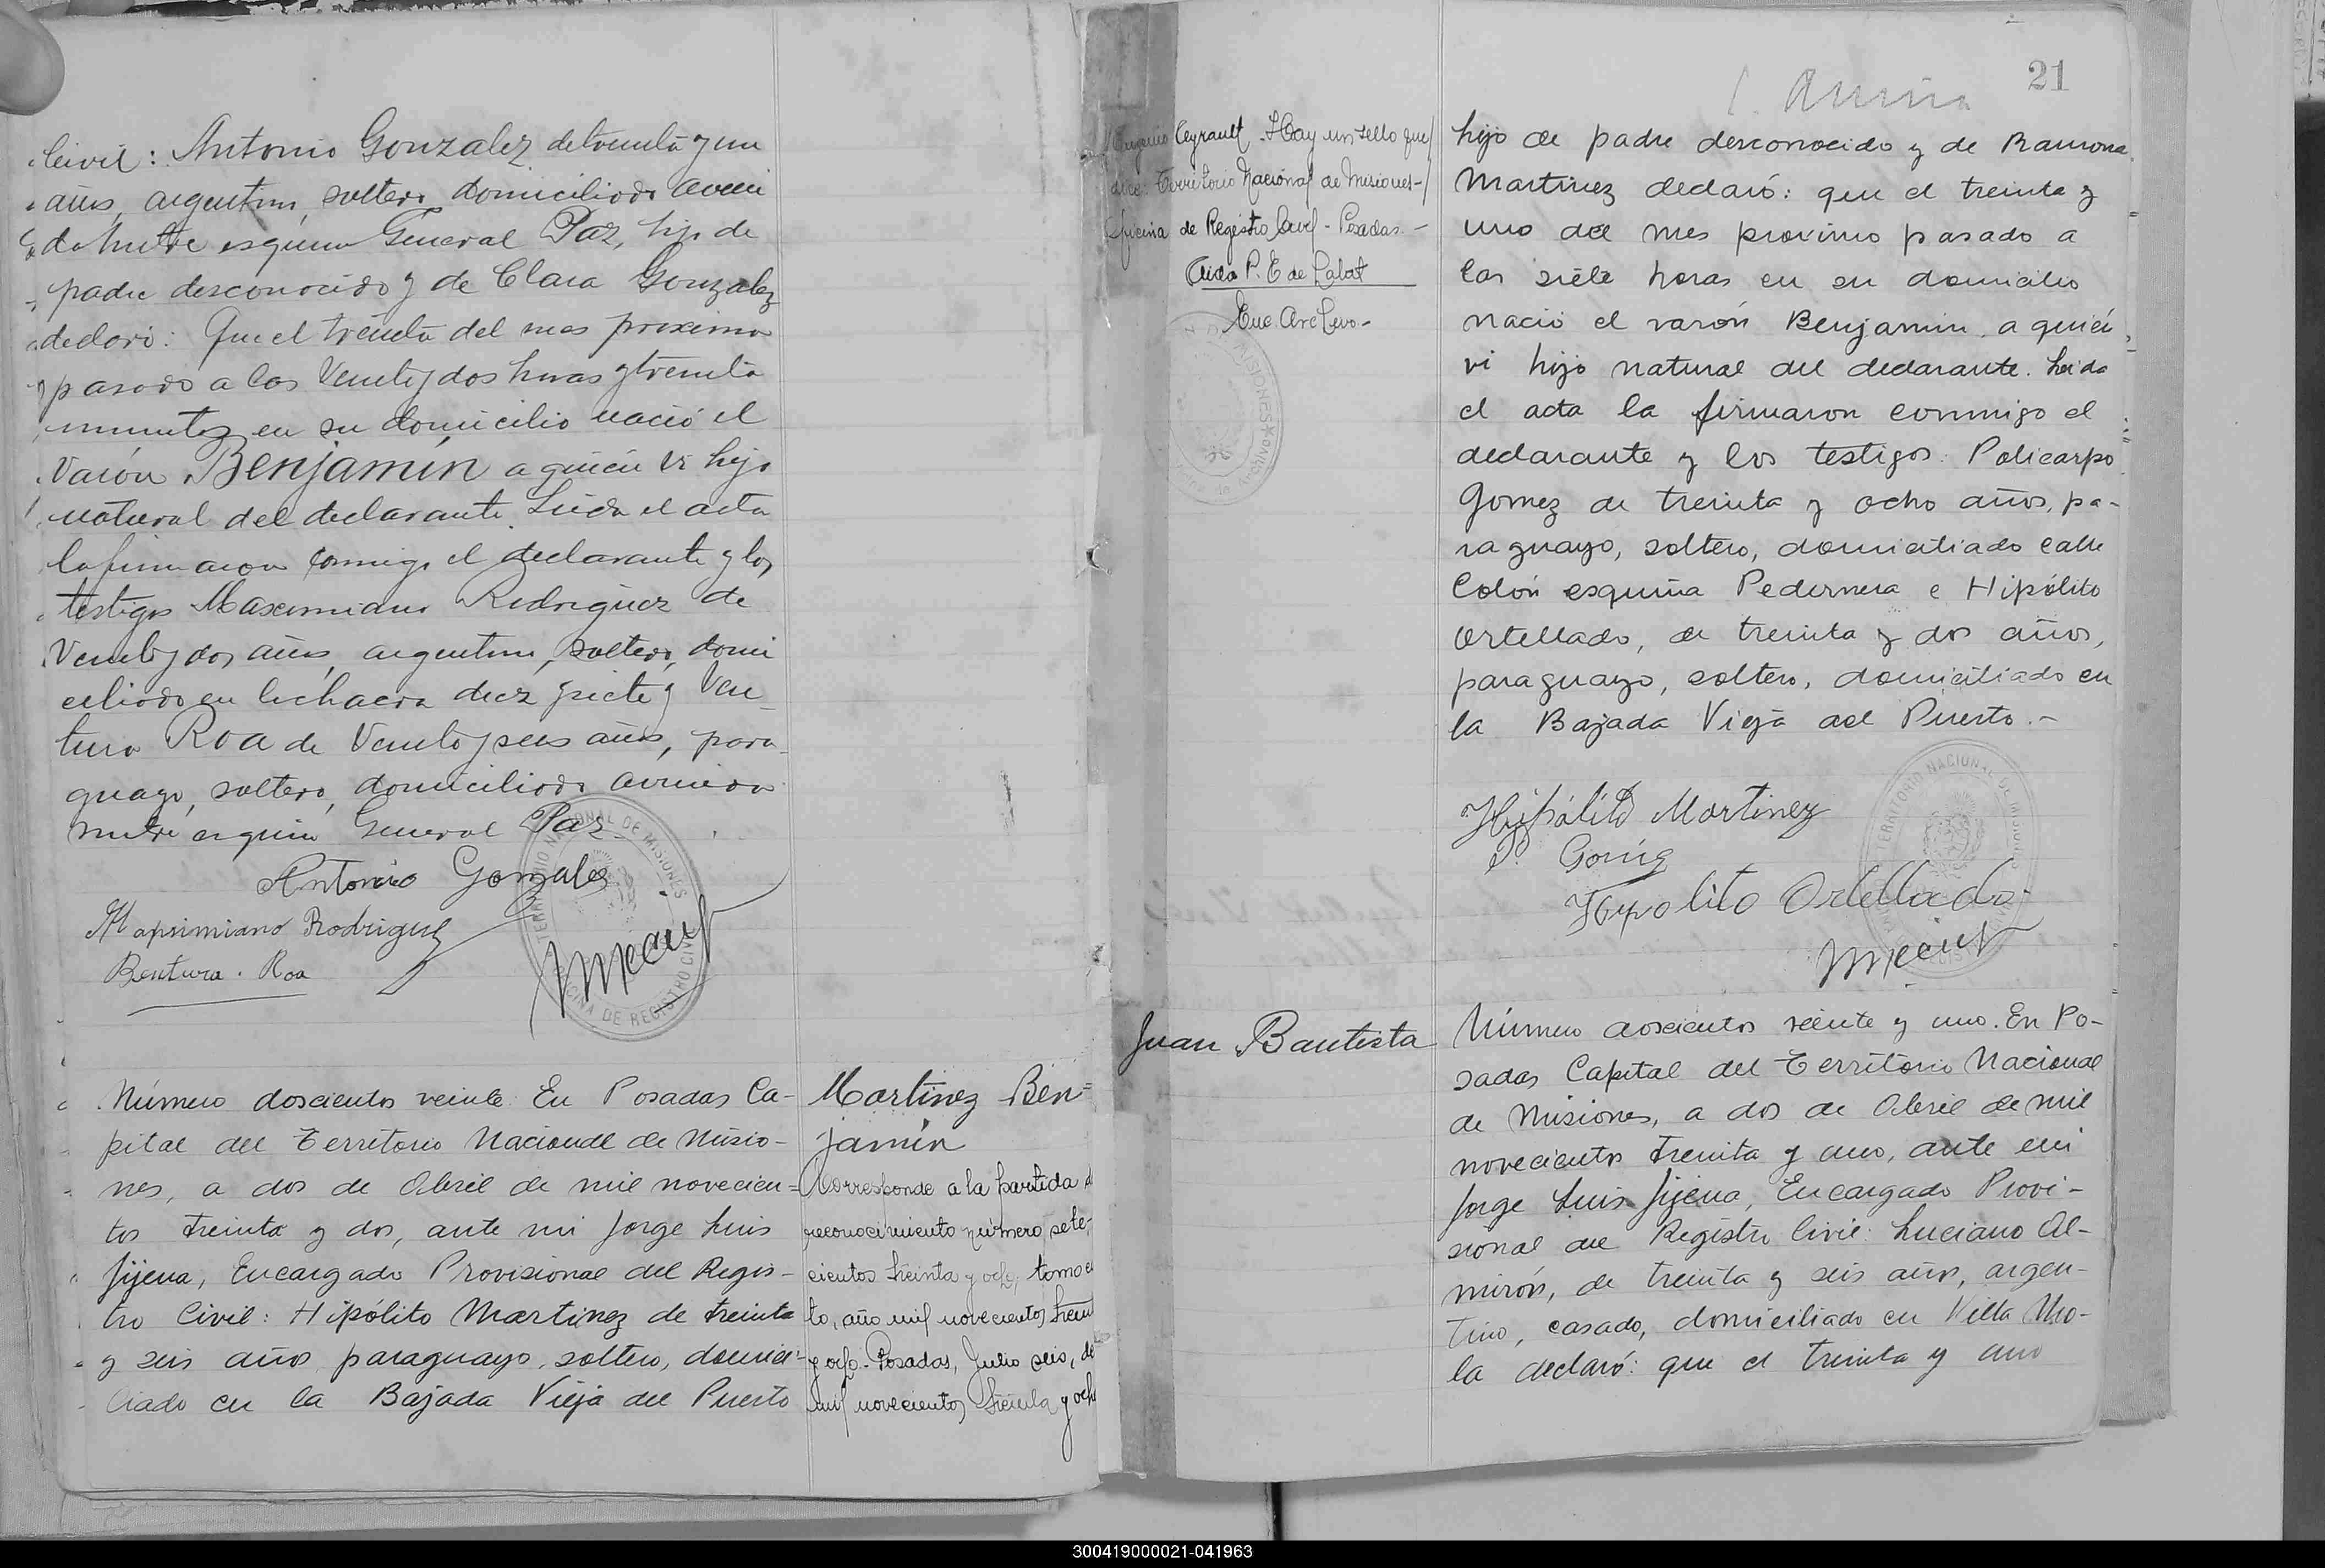 Civil: Antonio Gonzalez de treinta y un
años, argentino, soltero domiciliado aveni
da Mitre esquina General Paz, hijo de
padre desconocido y de Clara Gonzalez
declaró: Que el treinta del mes proximo
pasado a las veinte y dos horas y treinta
minutos en su domicilio nació el
varón Benjamín a quien vi hijo
natural del declarante. Leida el acta
la firmaron conmigo el declarante y los
testigos Maximiano Rodriguez de
veinte y dos años, argentino, soltero, domi
ciliado en la chacra diez y siete y Ven
tura Roa de veinte y seis años, para-
guayo, soltero, domiciliado avenida
Mitre esquina General Paz
Antonio Gonzalez
Mapsimiano Rodriguez
Bentura. Roa
TERRITORIO NACIONAL DE MISIONES
OFICINA DE REGISTRO CIVIL
Número doscientos veinte. En Posadas Ca-
pital del Territorio Nacional de Misio-
nes, a dos de Abril de mil novecien-
tos treinta y dos, ante mi Jorge Luis
Jijena, Encargado Provisional del Regis-
tro Civil: Hipólito Martinez de treinta
y seis años paraguayo, soltero, domici-
liado en la Bajada Vieja del Puerto
Martinez Ben=
jamín
Corresponde a la partida d
reconocimiento número sete-
cientos treinta y ocho, tomo
to, año mil novecientos trein
y ocho.- Posadas, Julio seis, de
mil novecientos treinta y ocho
Eugenio Ceyrault - Hay un sello que
dice: Territorio Nacional de Misiones -
Oficina de Registro Civil - Posadas. -
Aida P. E de Labat
Enc. Archivo-
21
hijo de padre desconocido y de Ramona
Martinez declaró: que el treinta y
uno del mes proximo pasado a
las siete horas en su domicilio
nació el varón Benjamin, a quien
vi hijo natural del declarante. Leida
el acta la firmaron conmigo el
declarante y los testigos: Policarpo
Gomez de treinta y ocho años, pa-
raguayo, soltero, domiciliado calle
Colón esquina Pedernera e Hipólito
Ortellado, de treinta y dos años,
paraguayo, soltero, domiciliado en
la Bajada Vieja del Puerto.-
Hipólito Martinez
P. Goméz
Hypolito Ortellado
Juan Bautista
Número doscientos veinte y uno. En Po-
sadas Capital del Territorio Nacional
de Misiones, a dos de Abril de mil
novecientos treinta y uno, ante mi
Jorge Luis Jijena, Encargado Provi-
sional del Registro Civil: Luciano Al-
mirón, de treinta y seis años, argen-
tino, casado, domiciliado en Villa Mo-
la declaró: que el treinta y uno
300419000021-041963